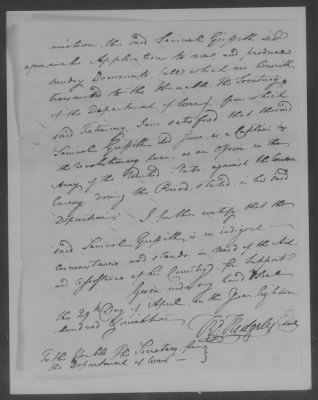 mination the said Samuel Griffith did
upon make Application to me and produce
sunday Documents (all which are herewith
transmitted to the Honorable the Secretary
of the Department of War) upon which
said Testimony I am satisfied that the said
Samuel Griffith did serve as a Captain in
the revolutionary War, as an officer in the
Army of the United States against the Common
Enemy during the Period stated in his said
Deposition: I further certify that the
said Samuel Griffith, is in indigent
circumstances and stands in need of the Aid
and Assistance of his Country for Support
Given under my hand & Seal
the 29th Day of April in the Year Eighteen
Hundred &
To the Honble The Secretary for
the Department of War —